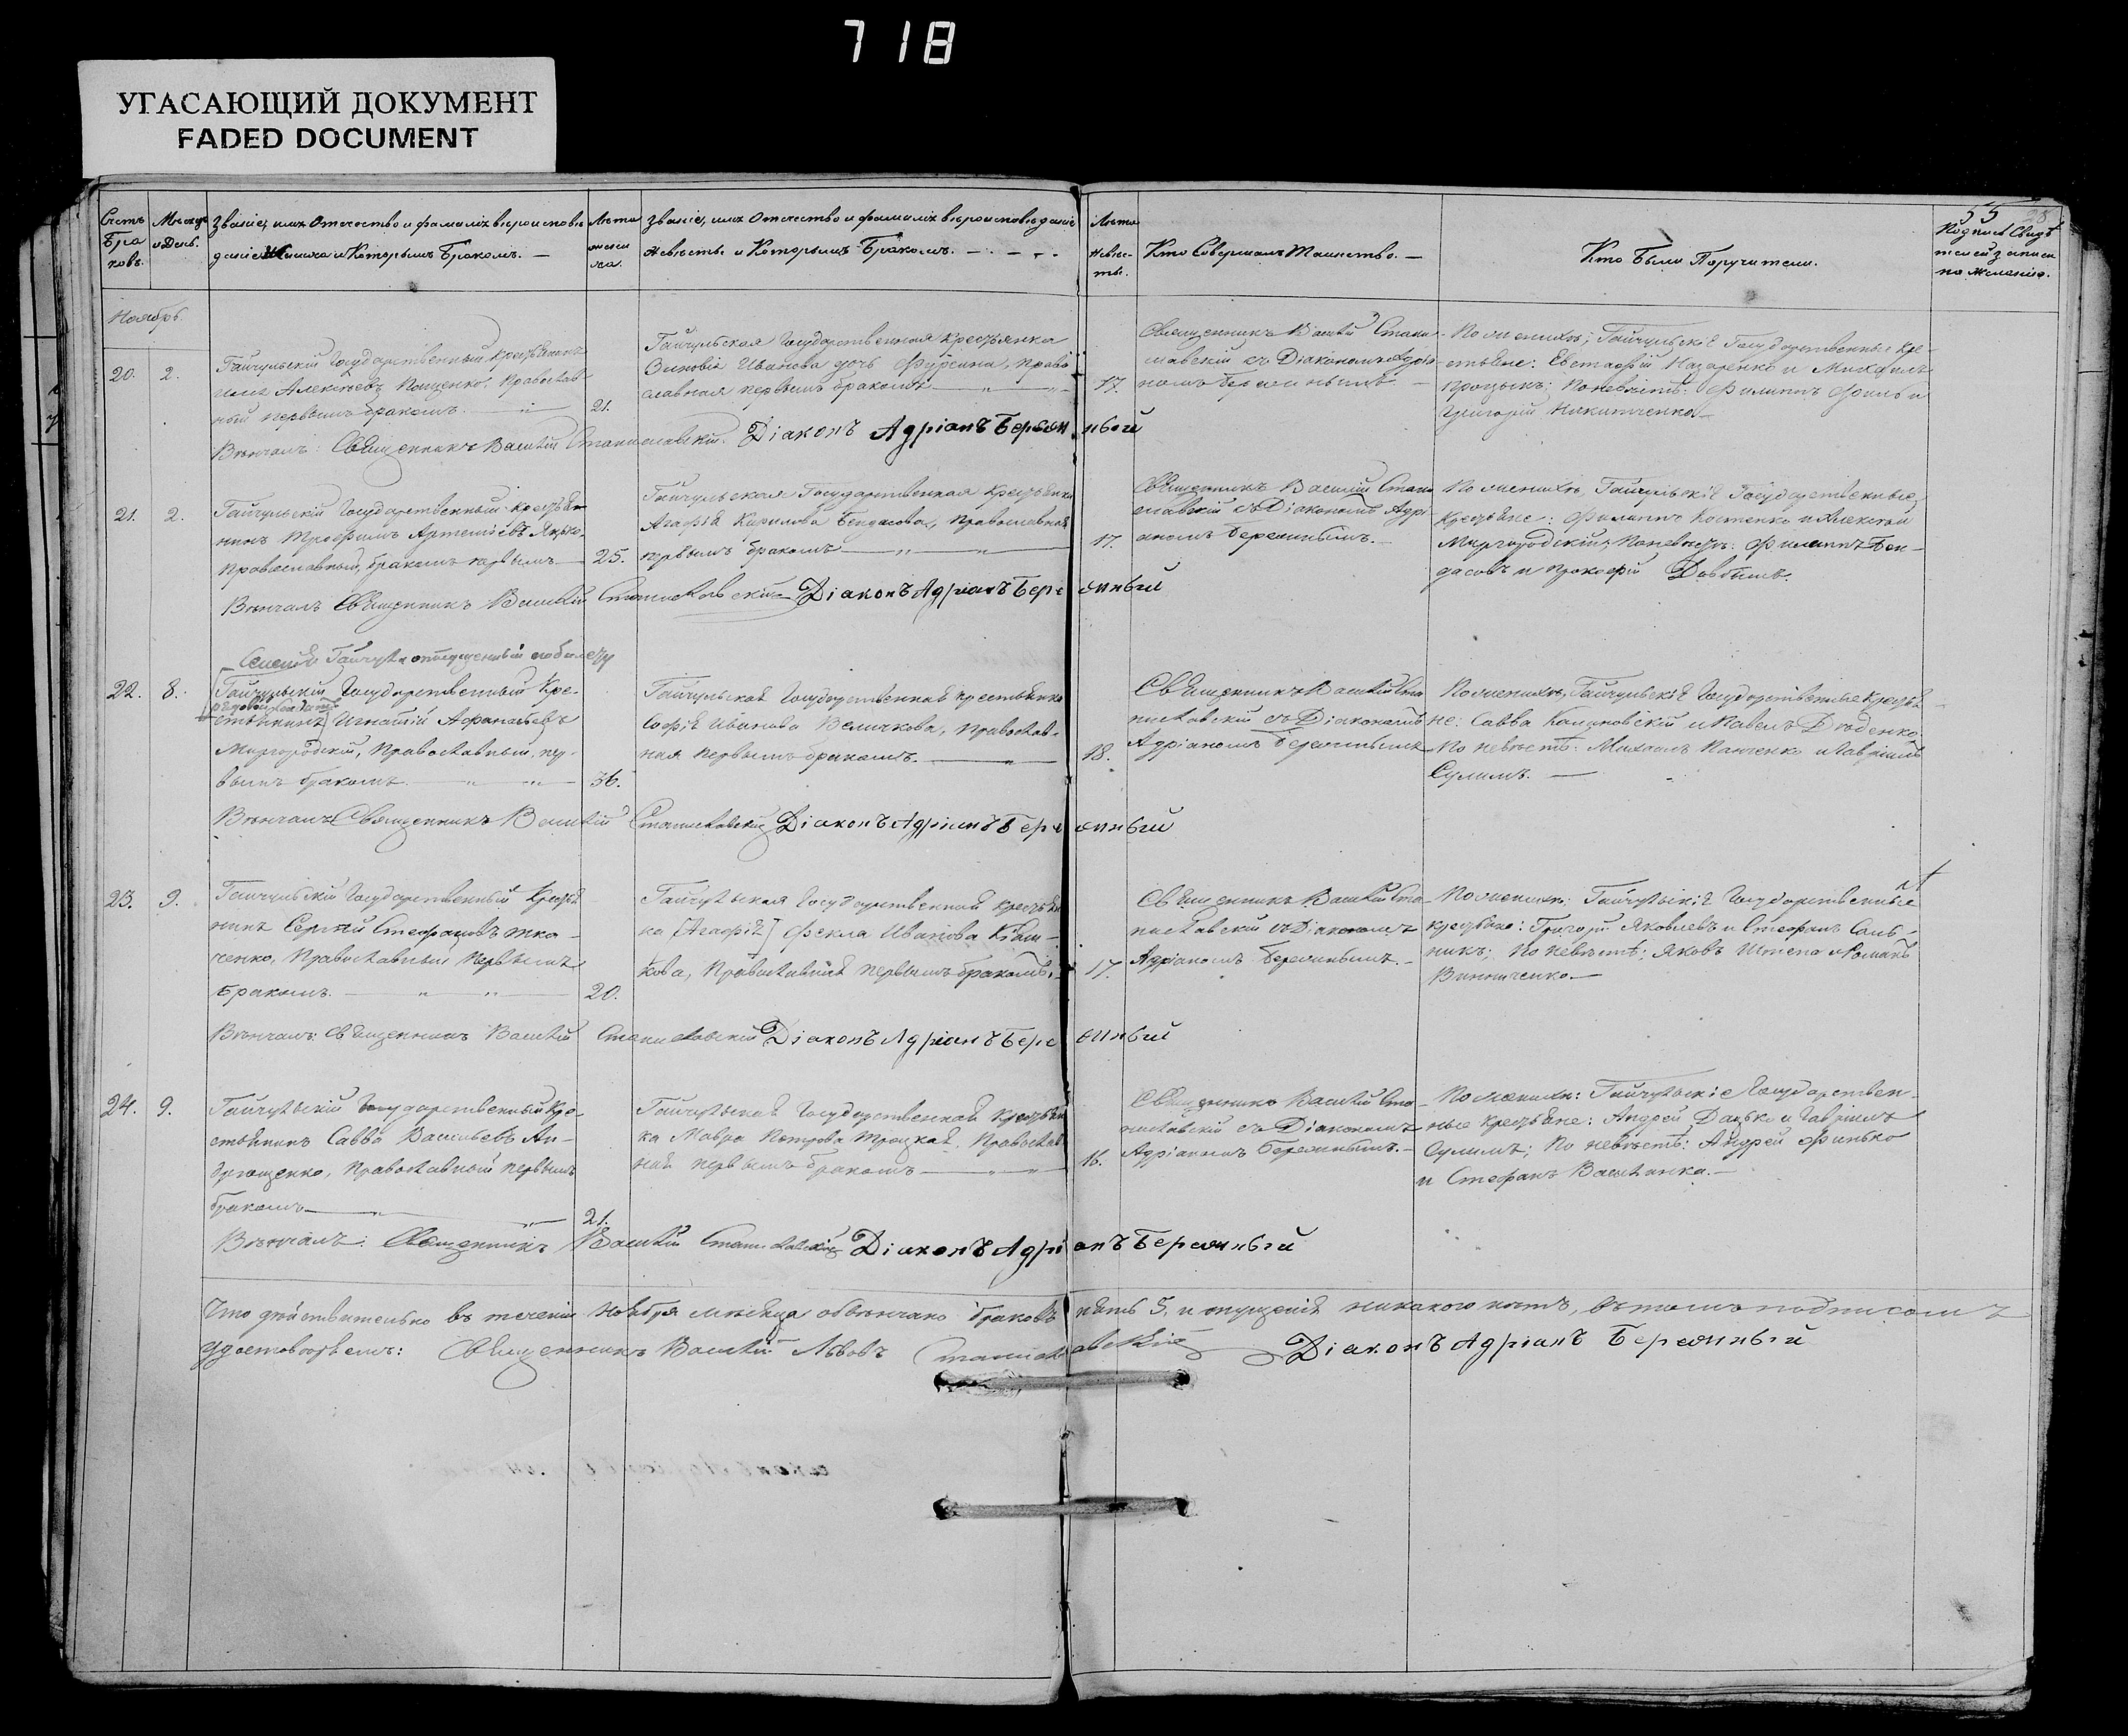 718
УГАСАЮЩИЙ ДОКУМЕНТ
FADED DOCUMENT
55
Счетъ Браковъ.
Мѣсяцъ и День.
Званіе, имя Отечество и фамилія вѣроисповѣданіе Жениха и Которымъ Бракомъ.
Лѣта жениха.
Званіе, имя Отечество и фамилія вѣроисповѣданіе Невѣсты и Которымъ Бракомъ.
Лѣта Невѣсты.
Кто Совершалъ Таинство.
Кто Были Поручители.
Подписъ Свидѣтелей записи по желанію.
Ноябрь.
20. 2.
Гайчульскій Государственный крестьянинъ
Алексѣевъ Православ-
ный первымъ бракомъ.
21.
Гайчульская Государственная крестьянка
Зиновія Иванова дочь Право-
славная первымъ бракомъ
17.
Священникъ Василій Стани-
славскій съ Діакономъ Адріа-
номъ Береминымъ.
По женихѣ; Гайчульскіе Государственные кре-
стьяне: Евстафій Назаренко и Михаилъ
По невѣстѣ: Филиппъ
Григорій Никитченко
Вѣнчалъ: Священникъ Василій Станиславскій. Діаконъ Адріанъ
21. 2.
Гайчульскій Государственный крестья-
нинъ Трофимъ Артеміевъ
Православный, бракомъ первымъ
25.
Гайчульская Государственная крестьянка
Агафія Кирилова Бендасова, Православная
первымъ бракомъ
17.
Священникъ Василій Стани-
славскій съ Діакономъ Адрі-
аномъ
По женихѣ, Гайчульскіе Государственные
крестьяне: Филиппъ Костенко и Алексѣй
Миргородскій; По невѣстѣ: Филиппъ Бен-
дасовъ и Прокофій Довбышъ.
Вѣнчалъ Священникъ Василій Станиславскій Діаконъ Адріанъ
Гайчула по билету
22. 8.
[Гайчульскій Государственный Кре-
стьянинъ] Игнатій Афанасьевъ
Миргородскій, Православный, пер-
вымъ бракомъ
36.
Гайчульская Государственная крестьянка
Софія Иванова Величкова, Православ-
ная первымъ бракомъ.
18.
Священникъ Василій Ста-
ниславскій съ Діакономъ
Адріаномъ
По женихѣ, Гайчульскіе Государственные крестья-
не: Савва Калиновскій и Павелъ Дѣденко
По невѣстѣ: Михаилъ Панченко и Гавріилъ
Сулимъ.
Вѣнчалъ Священникъ Василій Станиславскій Діаконъ Адріанъ
23. 9.
Гайчульскій Государственный Крестья-
нинъ Сергій Стефановъ Тка-
ченко, Православный Первымъ
Бракомъ.
20.
Гайчульская Государственная крестьян-
ка [Агафія] Фекла Иванова
Православная первымъ бракомъ.
17.
Священникъ Василій Ста-
ниславскій съ Діакономъ
Адріаномъ
По женихѣ: Гайчульскіе Государственные
крестьяне: Григорій Яковлевъ и Стефанъ
По невѣстѣ: Яковъ Штепа и Романъ
Винниченко
Вѣнчалъ: Священникъ Василій Станиславскій Діаконъ Адріанъ
24. 9.
Гайчульскій Государственный Кре-
стьянинъ Савва Васильевъ Ан-
друщенко, Православный первымъ
бракомъ
21.
Гайчульская Государственная Крестьян-
ка Мавра Петрова Троцкая, Православ-
ная первымъ бракомъ
16.
Священникъ Василій Ста-
ниславскій съ Діакономъ
Адріаномъ
По женихѣ: Гайчульскіе Государствен-
ные крестьяне: Андрей Дацько и Гавріилъ
Сулимъ; По невѣстѣ: Андрей Финько
и Стефанъ
Вѣнчалъ: Священникъ Василій Станиславскій Діаконъ Адріанъ
Что дѣйствительно въ теченіи Ноября мѣсяца обвѣнчано браковъ пять 5, и опущенія никакого нѣтъ, въ томъ подписомъ
удостовѣряемъ: Священникъ Василій Львовъ Станиславскій Діаконъ Адріанъ